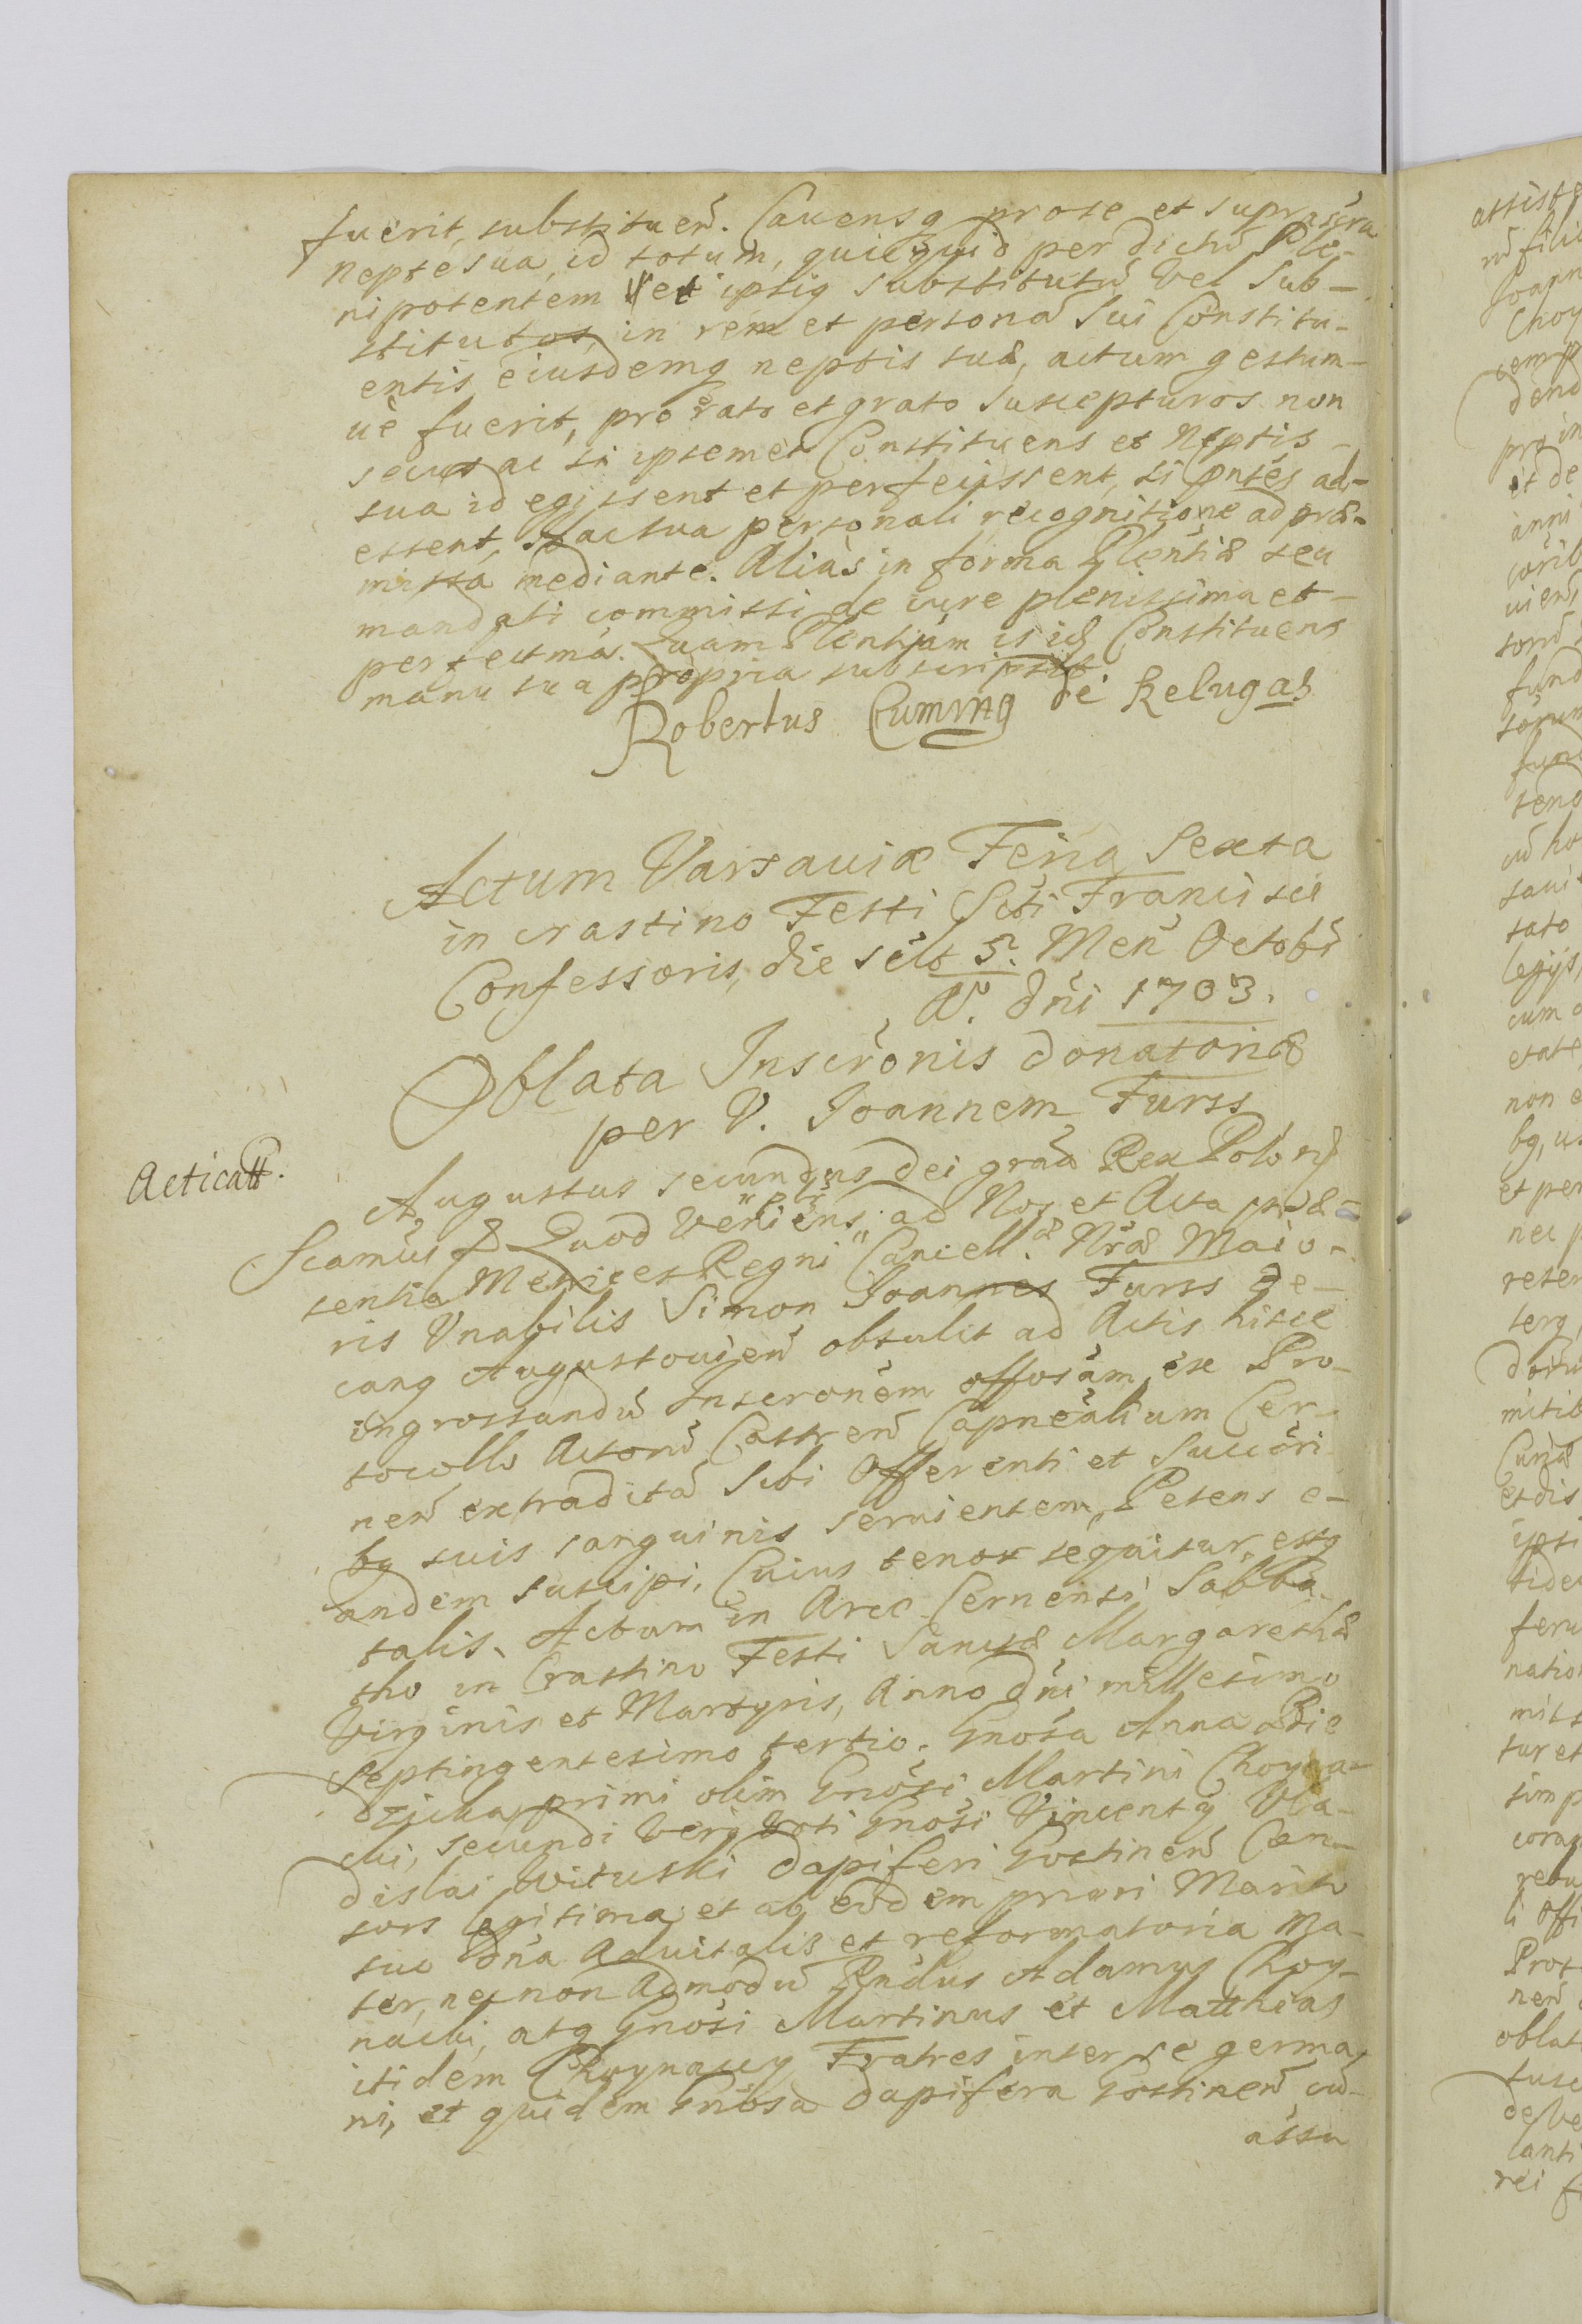 fuerit, substituen̄. Cavensq̨ pro se et suprascra
nepte sua, id totum, quicquid per dictū Ple-
nipotentem vel ipsiq̨ substitutū vel sub-
stitutos, in rem et personā sui Constitu-
entis eiusdemq̨ neptis suæ, actum gestum-
ue fuerit, pro rato et grato suscepturos non
secus ac si ipsemet Constituens et Neptis
sua id egissent et perfecissent, si pntes ad-
essent, sua personali recognitione ad præ-
missa mediante. Alias in forma Plentiæ seu
mandati commissi de iure plenissima et
perfectma. Quam Plentiam is id Constituens
manu sua propria subscripsit
Robertus Cuming de Relugas
Actum Varsaviæ Feria sexta
in crastino Festi Scti Francisci
Confessoris, die scilt 5. Men Octobr
Aº. dni 1703.
Oblata Inscronis donatoriæ
per V. Joannem Furss
Acticatt.
Augustus secundus dei gra Rex Polon
Scamus Quod veniens ad Nos et Acta præ-
sentia Metrices Regni Cancell. Nræ Maio-
ris Vnabilis Simon Joannes Furss De-
canq̨ Augustovien̄ obtulit ad Actis hisce
ingrossandū Inscronem offosam ex Pro-
tocollo Actorū Castren̄ Capnealium Cer-
nen̄ extraditā Sibi Offerenti et Succori-
bq̨ suis sanguinis servientem, Petens e-
andem suscipi, Cuius tenor sequitur estq̨
talis. Actum in Arce Cernensi Sabba-
tho in Crastino Festi Sanctæ Margarethæ
Virginis et Martyris, Anno dni millesimo
septingentesimo tertio. Gnosa Anna Pie
dzicka, primi olim Gnosi Martini Choyna-
cki, secundi vero voti Gnosi Vincenty Vla-
dislai Wituski dapiferi Gostinen̄ Con-
sors legitima, et ab eodem priori Marito
suo dna Advitalis et reformatoria Ma-
ter, nec non Admodū Rndus Adamus Choy-
nacki, atq̨ Gnosi Martinus et Matthæas
itidem Choynaccy Fratres inter se germa-
ni, et quidem Gnosa dapifera Gostinen̄ cū
assu